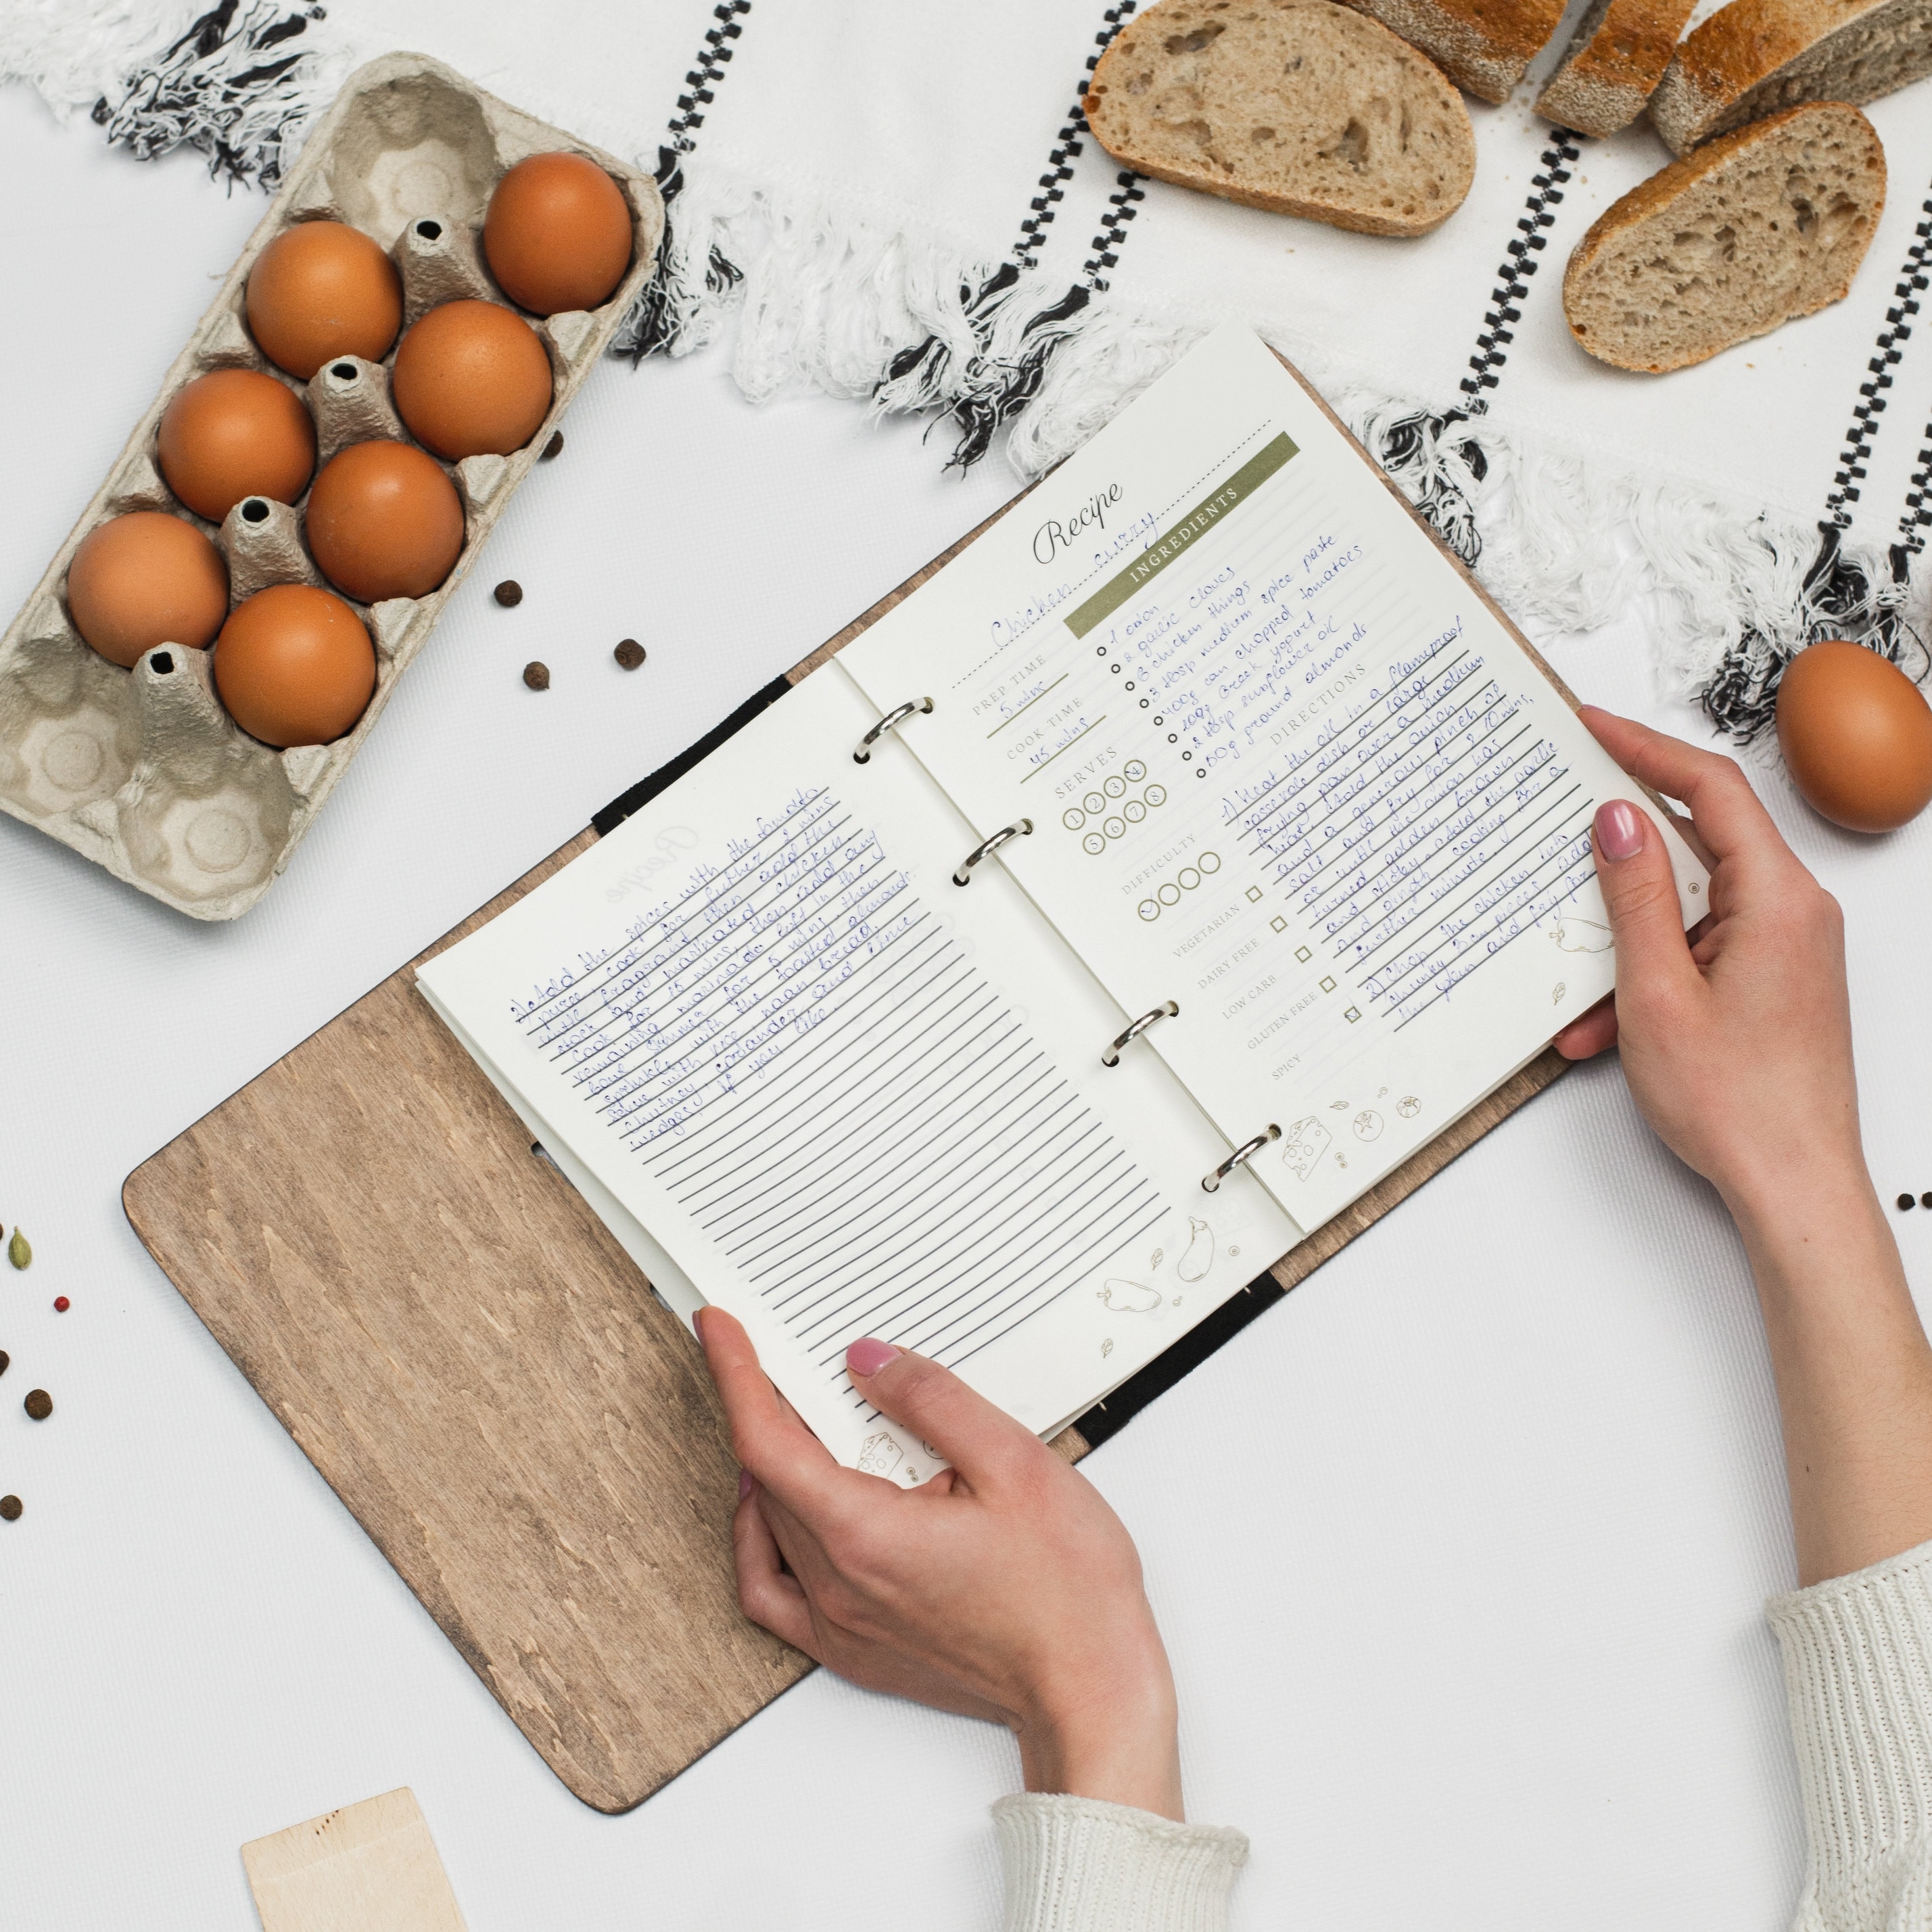 Recipe
Chicken curry
INGREDIENTS
1 onion
2 garlic cloves
6 chicken things
3 tbsp medium spice paste
400g can chopped tomatoes
100g Greek yogurt
2 tbsp sunflower oil
50g ground almonds
PREP TIME
5 mins
COOK TIME
45 mins
SERVES
1 2 3 4
5 6 7 8
DIFFICULTY
VEGETARIAN
DAIRY FREE
LOW CARB
GLUTEN FREE
SPICY
DIRECTIONS
1) Heat the oil in a flameproof
casserole dish or large
frying pan over a medium
heat. Add the onion
and a generous pinch of
salt and fry for 8-10 mins,
or until the onion has
turned golden brown
and sticky. Add the garlic
and ginger, cooking for a
further minute
2) Chop the chicken into
chunky 3cm pieces, add
the pan and fry for
Add the spices with the tomato
puree, cook for further 2 mins
until fragrant then add the
stock and marinated chicken.
Cook for 15 mins, then add any
remaining marinade left in the
bowl. Simmer for 5 mins, then
sprinkle with the toasted almonds.
Serve with rice, naan bread,
chutney, coriander and lime
wedges, if you like.
Recipe